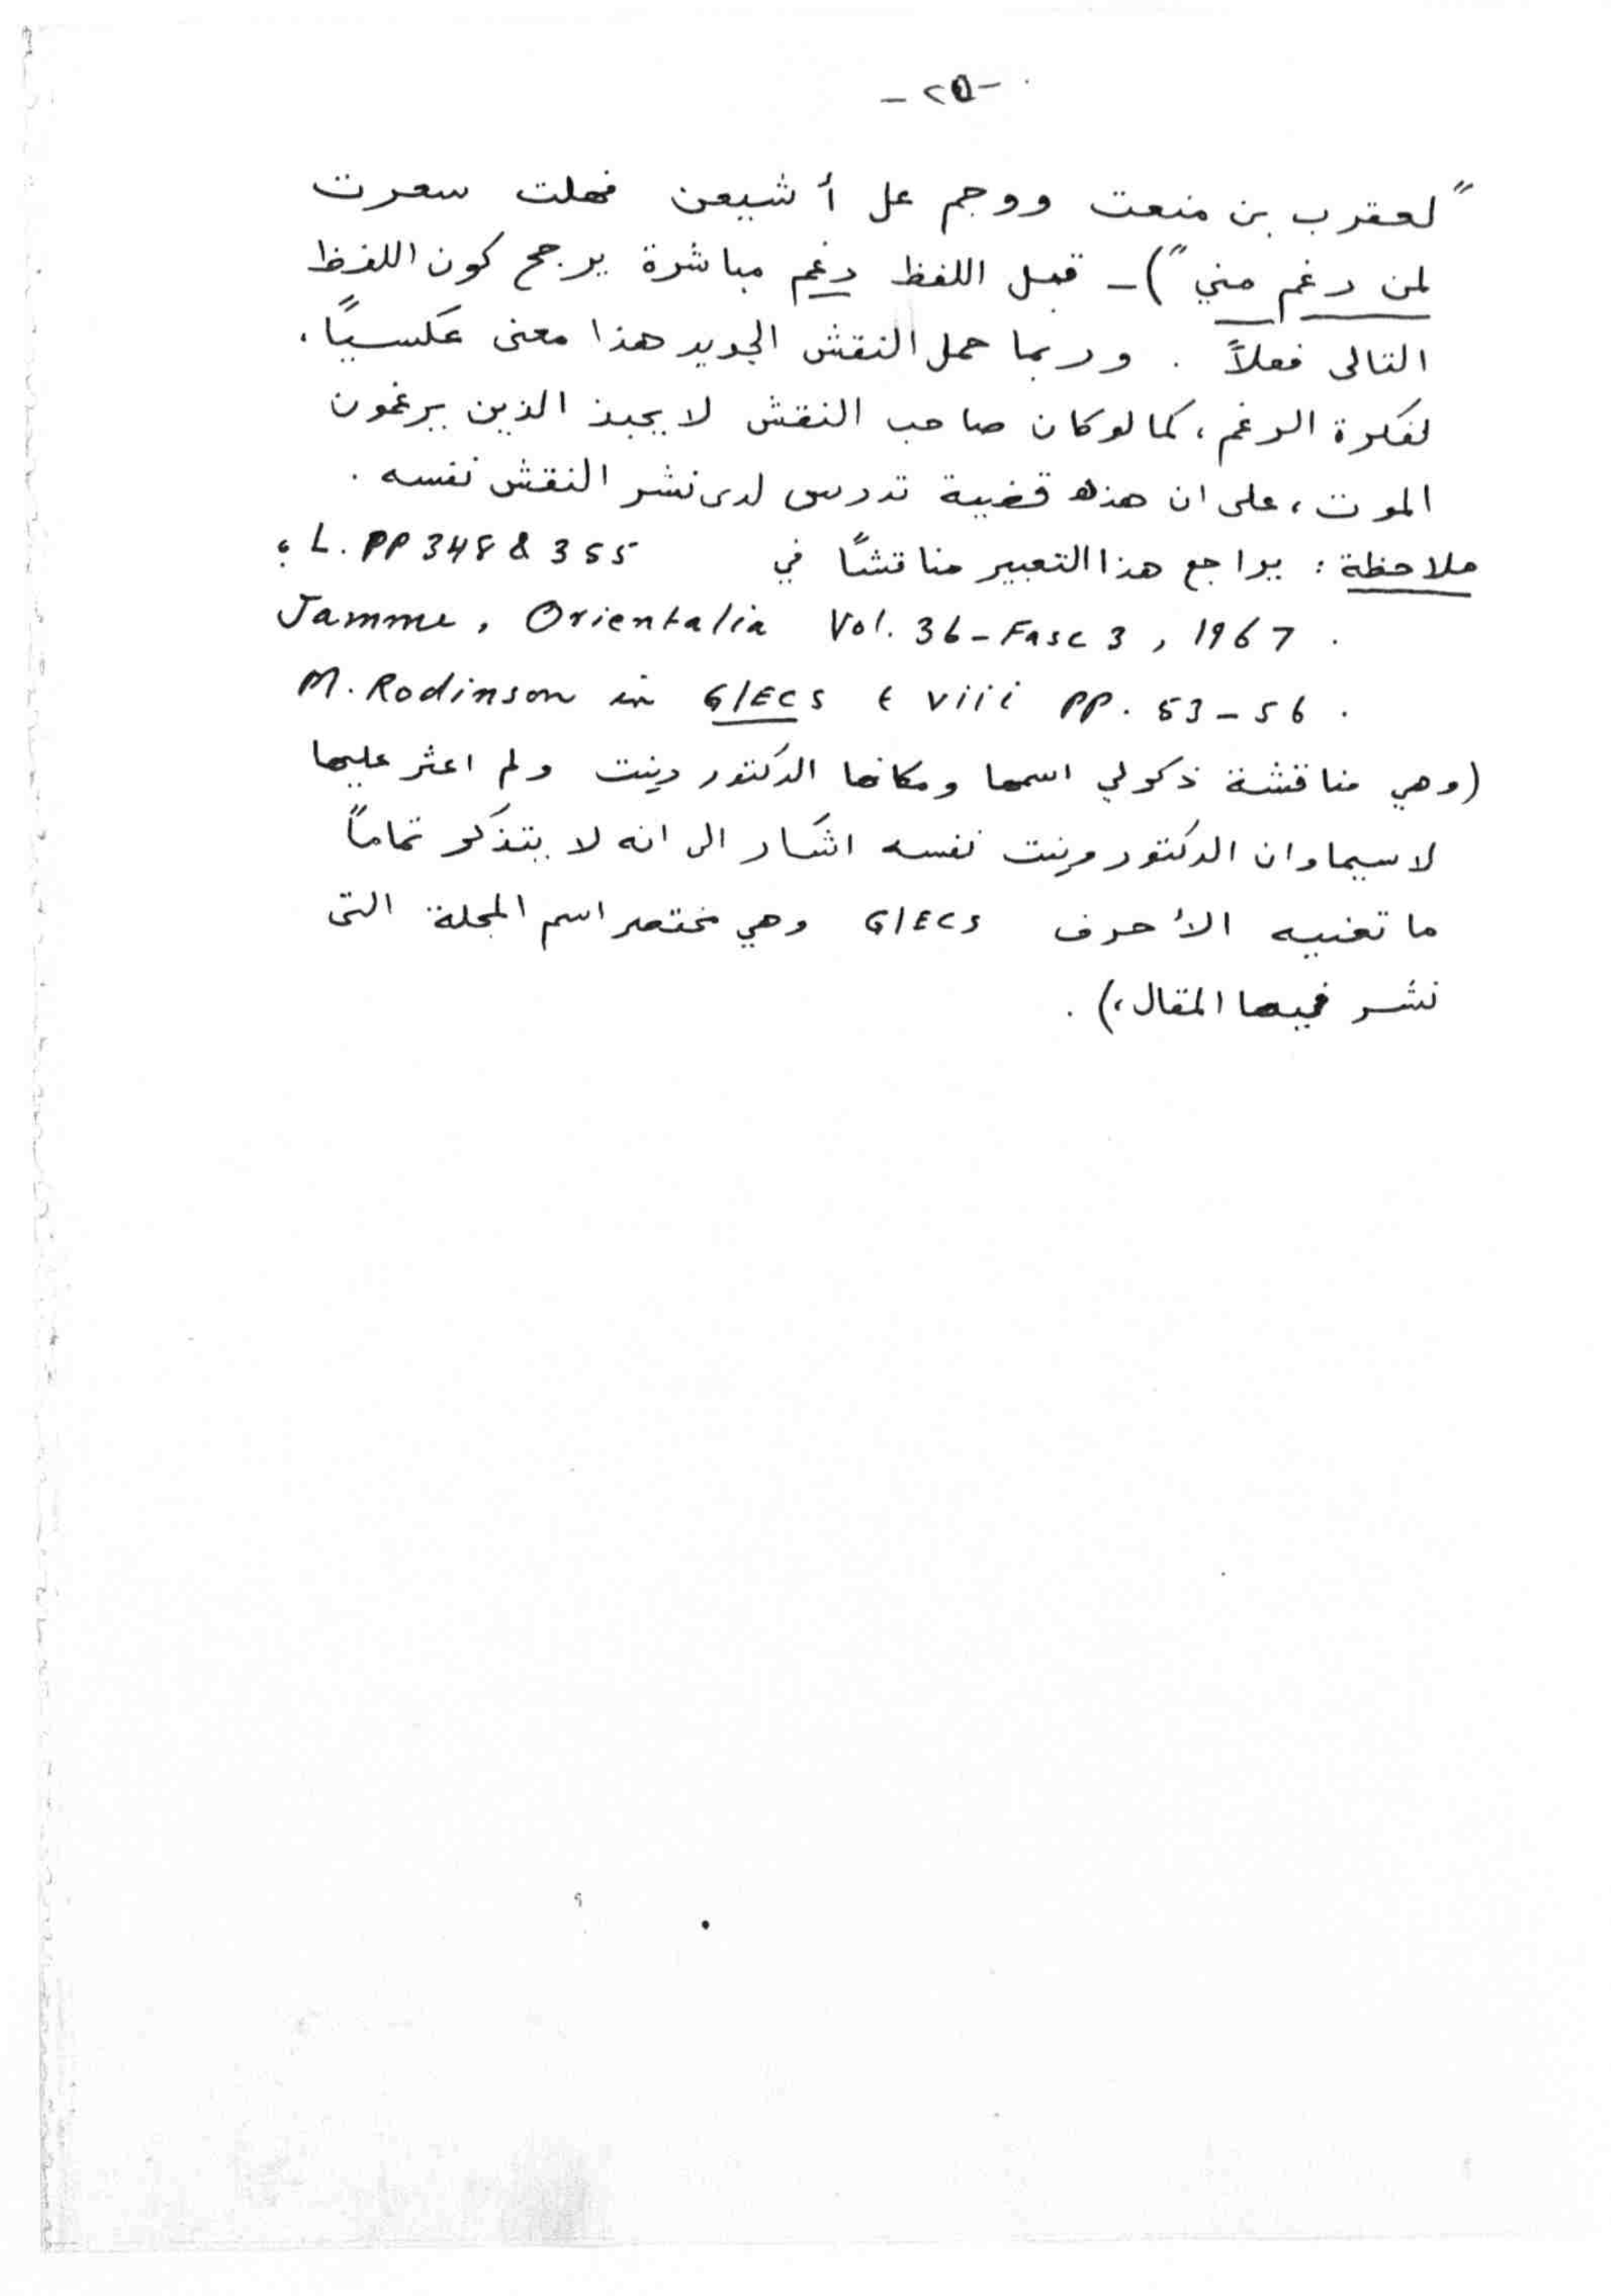 - ٢٥ -
"لعقرب بن منعت ووجم عل أشيعن فهلت سعرت
لمن رغم مني") - قبل اللفظ رغم مباشرة يرجح كون اللفظ
التالى فعلاً . وربما حمل النقش الجديد هذا معنى عكسياً،
لفكرة الرغم، كما لو كان صاحب النقش لا يحبذ الذين يرغمون
الموت، على ان هذه قضية تدرس لدى نشر النقش نفسه .
ملاحظة : يراجع هذا التعبير مناقشاً في L. PP 348 & 355 ؛
Jamme, Orientalia Vol. 36 - Fasc 3, 1967 .
M. Rodinson in GLECS t viii pp. 53-56 .
(وهي مناقشة ذكر لي اسمها ومكانها الدكتور وينت ولم اعثر عليها
لا سيما وان الدكتور وينت نفسه اشار الى انه لا يتذكر تماماً
ما تعنيه الأحرف GLECS وهي مختصر اسم المجلة التى
نشر فيها المقال،) .